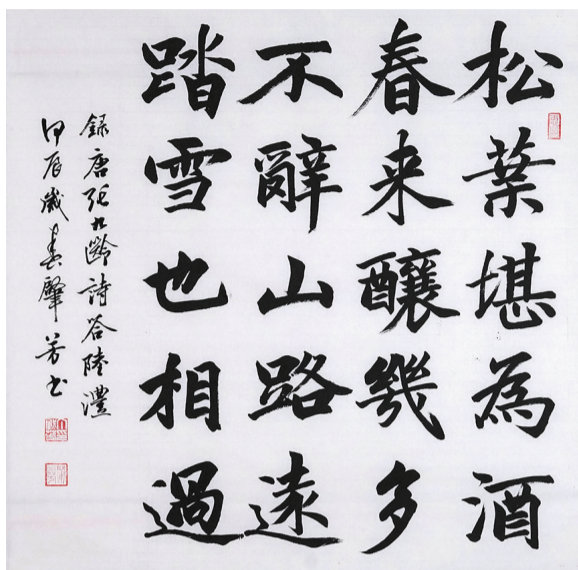 松葉堪為酒
春来釀幾多
不辭山路遠
踏雪也相過
録唐張九齡詩答陸澧
甲辰歲春肇芳书